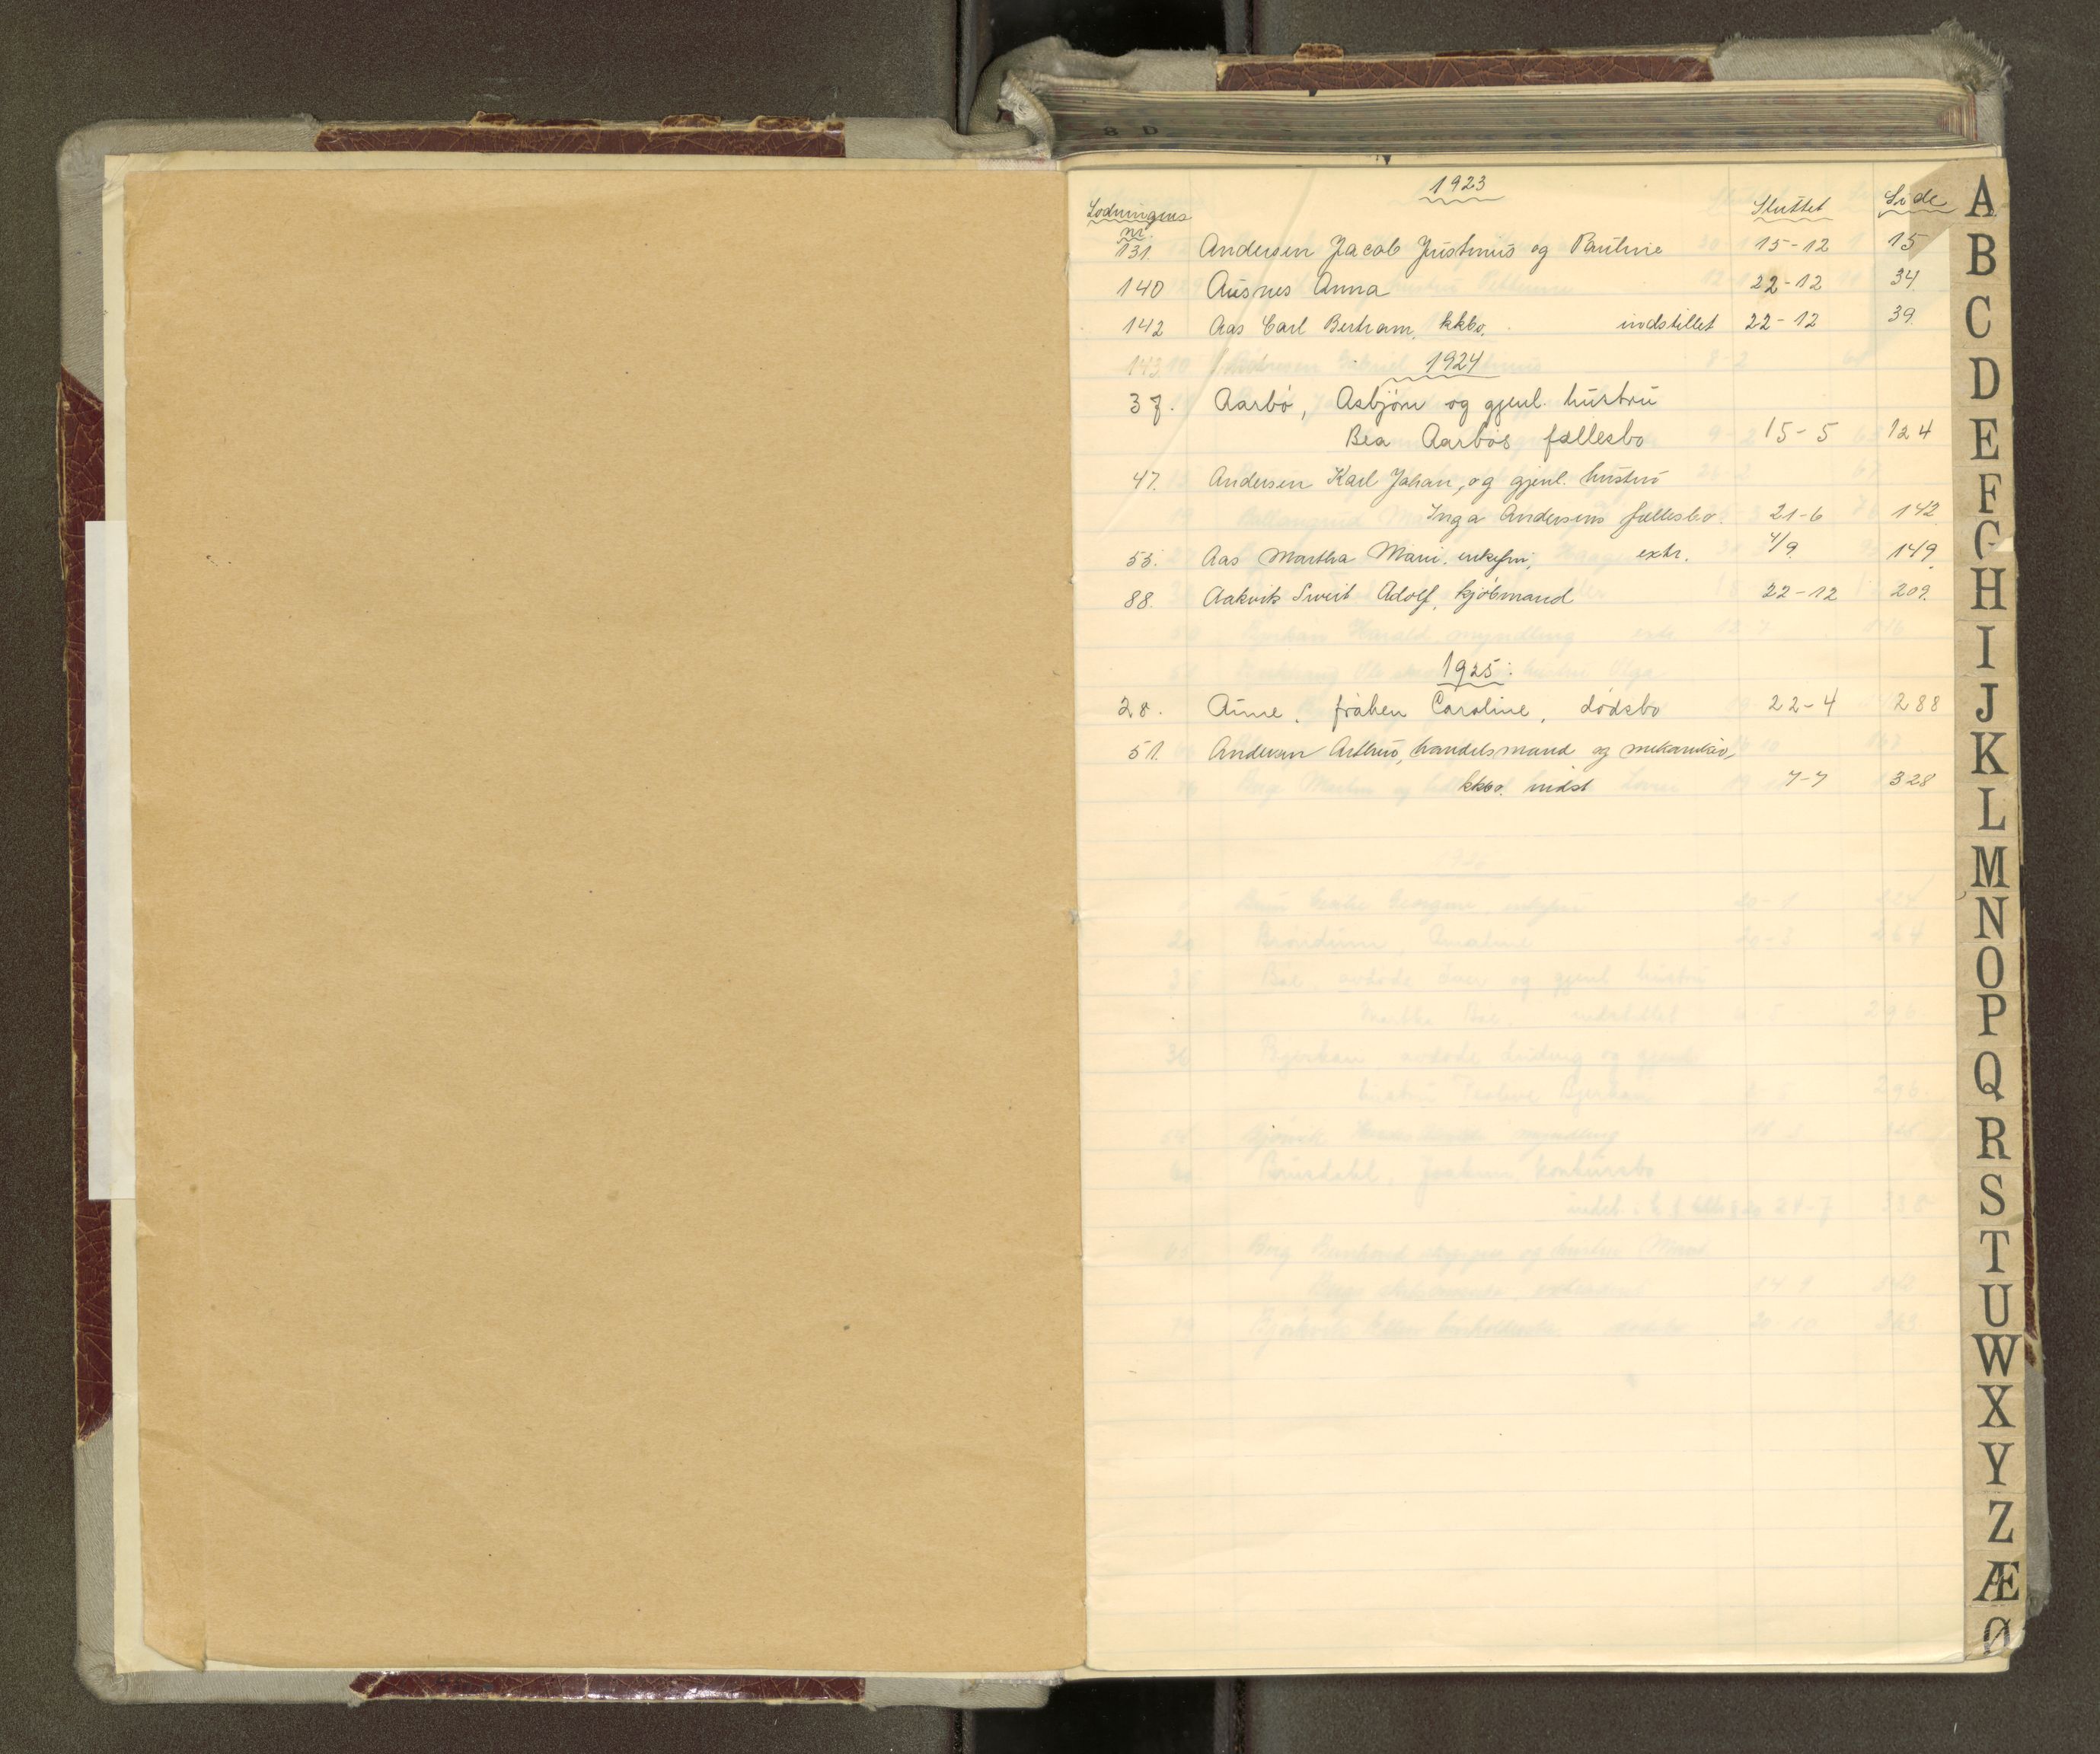 1923
Lodningens
nr.
Sluttet
Side
131. Andersen Jacob Justinus og Pauline 15-12 15
140 Ausnes Anna 22-12 34
142 Aas Carl Bertram, kkbo. indstillet 22-12 39.
1924
37. Aarbö, Asbjörn og gjenl. hustru
Bea Aarbös fællesbo 15-5 124
47. Andersen Karl Johan, og gjenl. hustru
Inga Andersens fællesbo. 21-6 142
55. Aas Martha Marie, enkefru, extr. 4/9. 149.
88. Aakvik Adolf, kjöbmand 22-12 209.
1925:
28. Aune, fröken Caroline, dödsbo 22-4 288
51. Andersen Arthur, handelsmand og mekanikер,
kkbo. indst 7-7 328
A
B
C
D
E
F
G
H
I
J
K
L
M
N
O
P
Q
R
S
T
U
W
X
Y
Z
Æ
Ø